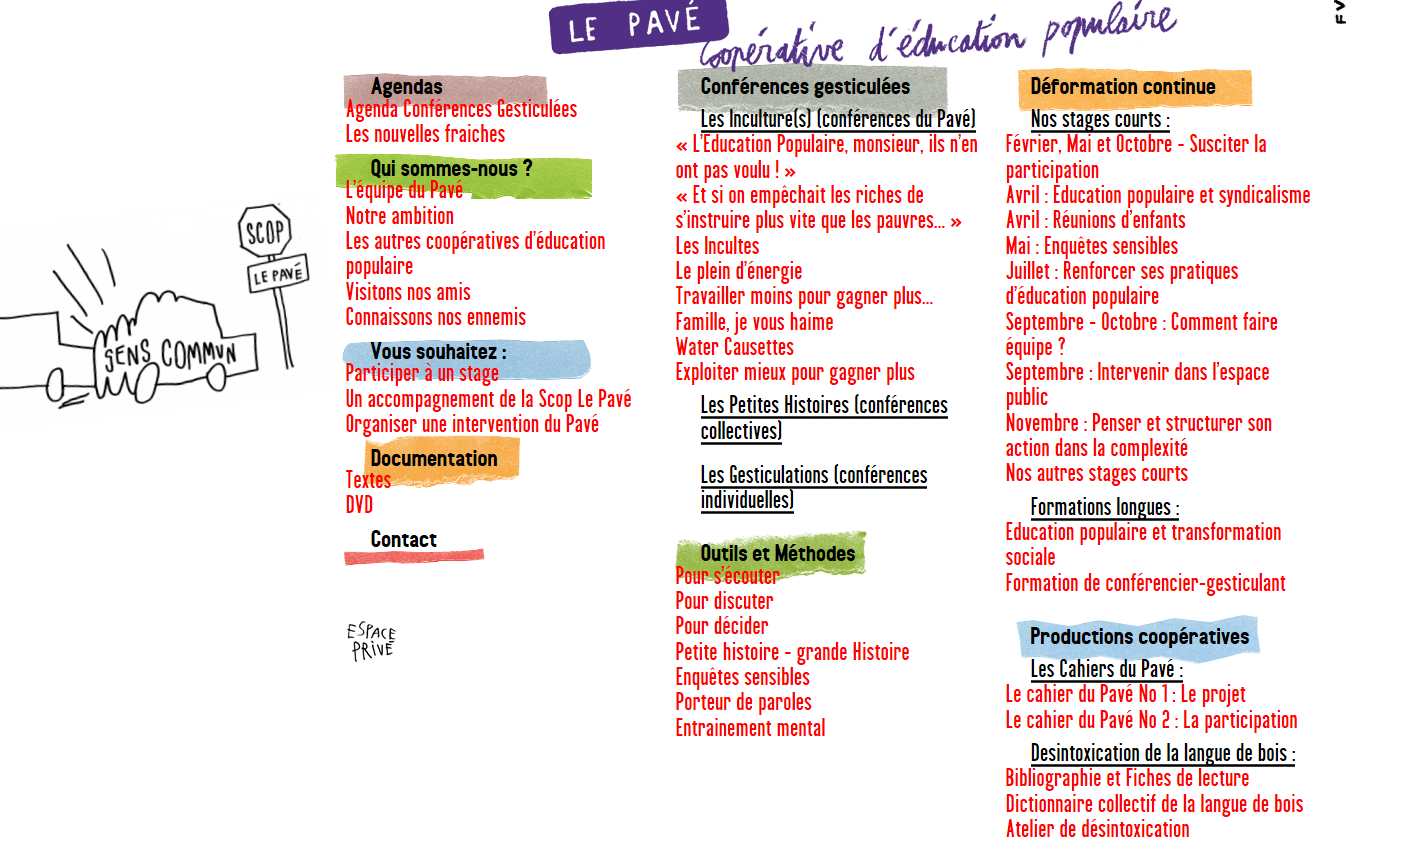 LE PAVÉ
Coopérative d'éducation populaire
FV
SCOP
LE PAVÉ
SENS COMMUN
Agendas
Agenda Conférences Gesticulées
Les nouvelles fraiches
Qui sommes-nous ?
L'équipe du Pavé
Notre ambition
Les autres coopératives d'éducation
populaire
Visitons nos amis
Connaissons nos ennemis
Vous souhaitez :
Participer à un stage
Un accompagnement de la Scop Le Pavé
Organiser une intervention du Pavé
Documentation
Textes
DVD
Contact
ESPACE
PRIVÉ
Conférences gesticulées
Les Inculture(s) (conférences du Pavé)
« L'Education Populaire, monsieur, ils n'en
ont pas voulu ! »
« Et si on empêchait les riches de
s'instruire plus vite que les pauvres... »
Les Incultes
Le plein d'énergie
Travailler moins pour gagner plus...
Famille, je vous haime
Water Causettes
Exploiter mieux pour gagner plus
Les Petites Histoires (conférences
collectives)
Les Gesticulations (conférences
individuelles)
Outils et Méthodes
Pour s'écouter
Pour discuter
Pour décider
Petite histoire - grande Histoire
Enquêtes sensibles
Porteur de paroles
Entrainement mental
Déformation continue
Nos stages courts :
Février, Mai et Octobre - Susciter la
participation
Avril : Education populaire et syndicalisme
Avril : Réunions d'enfants
Mai : Enquêtes sensibles
Juillet : Renforcer ses pratiques
d'éducation populaire
Septembre - Octobre : Comment faire
équipe ?
Septembre : Intervenir dans l'espace
public
Novembre : Penser et structurer son
action dans la complexité
Nos autres stages courts
Formations longues :
Education populaire et transformation
sociale
Formation de conférencier-gesticulant
Productions coopératives
Les Cahiers du Pavé :
Le cahier du Pavé No 1 : Le projet
Le cahier du Pavé No 2 : La participation
Desintoxication de la langue de bois :
Bibliographie et Fiches de lecture
Dictionnaire collectif de la langue de bois
Atelier de désintoxication